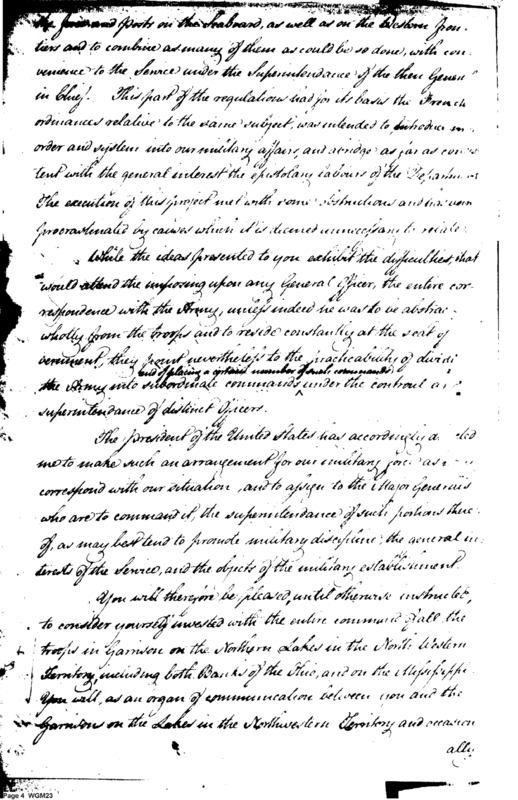 the forts and posts on the Seaboard, as well as on the Western fron-
tiers and to combine as many of them as could be so done, with con-
venience to the Service under the Superintendance of the then General
in Chief. This part of the regulations had for its basis the French
ordinances relative to the same subject, was intended to introduce
order and system into our military affairs, and abridge as far as consis
tent with the general interest the epistolary labours of the Department
The execution of this project met with some obstructions and has been
procrastinated by causes which it is deemed unnecessary to relate.
While the ideas presented to you exhibit the difficulties, that
would attend the imposing upon any General Officer, the entire cor-
respondence with the Army, unless indeed he was to be abstrac
wholly from the troops and to reside constantly at the seat of
vernment, they point nevertheless to the practicability of dividi
and of placing a certain number of such commands
the Army into subordinate commands ^ under the controul and
superintendance of distinct Officers.
The president of the United States has accordingly directed
me to make such an arrangement for our military force as
correspond with our situation, and to assign to the Major Generals
who are to command it, the superintendance of such portions there
of, as may best tend to promote military discipline, the general in
terests of the Service, and the objects of the military establishment.
You will therefore be pleased, until otherwise instructed,
to consider yourself invested with the entire command of all the
troops in Garrison on the Northern Lakes in the North Western
Territory, including both Banks of the Ohio, and on the Mississippi
You will, as an organ of communication between you and the
Garrisons on the Lakes in the Northwestern Territory and occasion
ally
Page 4 WGM23